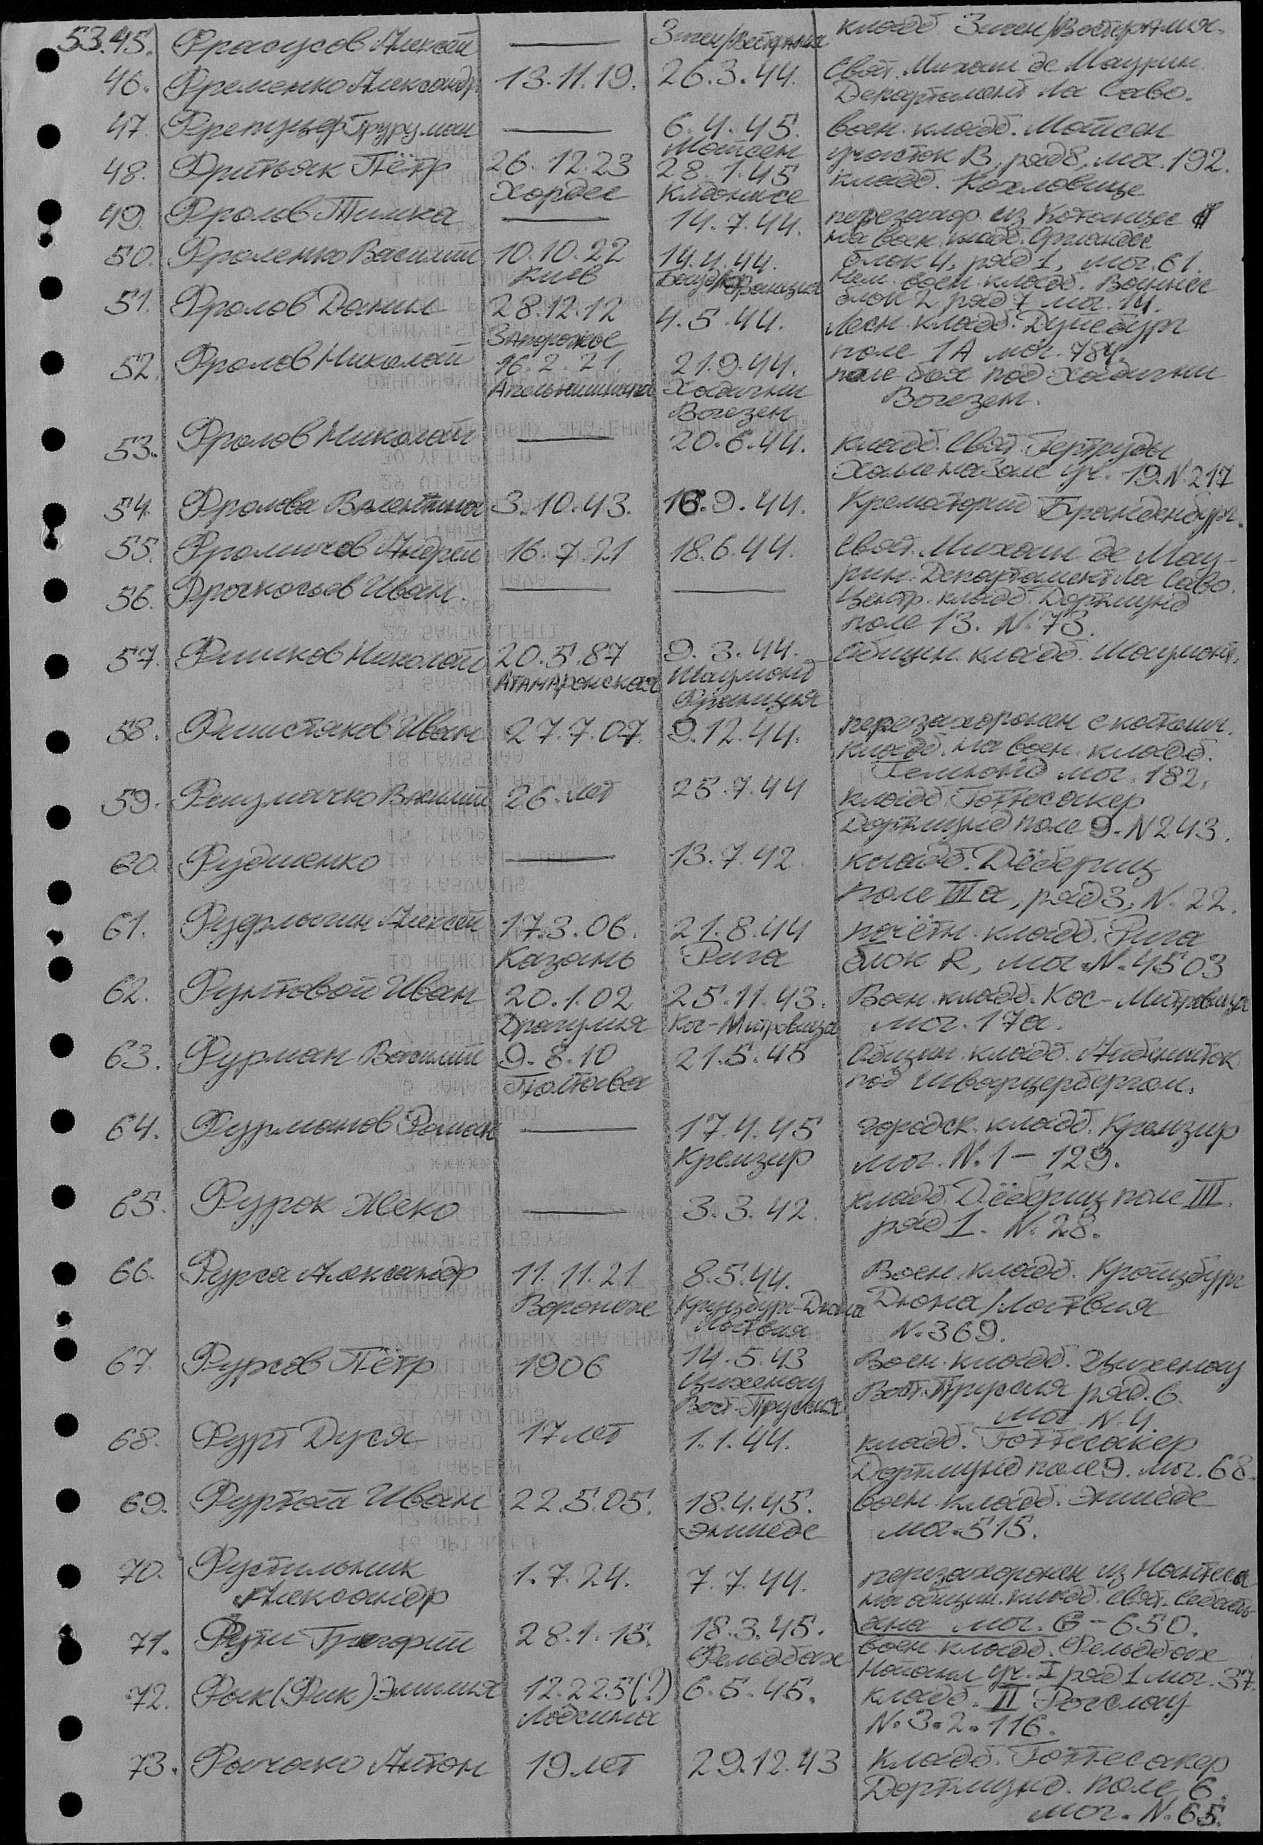 53.45. Фрасусов Алексей — Зиген/Вестфалия кладб. Зиген/Вестфалия.
46. Фременко Александр 13.11.19. 26.3.44. Свят. Михаил де Маурин
Департамент ла Саво.
47. — 6.4.45. воен. кладб. Мойсен
Мойсен участок В, ряд 8. мог. 192.
48. Фритьяк Пётр 26.12.23 28.1.45 кладб. Кохловице
Хордее
49. Фролов Тимка — 14.7.44. перезахор. из
на воен. кладб.
50. Фроленко Василий 10.10.22 19.4.44. блок 4, ряд 1, мог. 61.
Киев Франция нем. воен. кладб.
51. Фролов Данил 28.12.12 4.5.44. блок 2 ряд 7 мог. 14.
Запорожье Лесн. кладб. Дуисбург
поле 1А мог. 784.
52. Фролов Николай 16.2.21. 21.9.44. поле боя под
Вогезен Вогезен.
53. Фролов Николай — 20.6.44. кладб. Свят. Гертруды
уч. 19 N 217
54. Фролова Валентина 3.10.43. 16.9.44. Крематорий Бранденбург.
55. Фромичов Андрей 16.7.21 18.6.44. Свят. Михаил де Мау-
рин. Департамент ла Саво.
56. Иван. — — Центр. кладб. Дортмунд
поле 13. N. 73.
57. Фишков Николай 20.5.87 9.3.44. общин. кладб. Шаумонт.
Шаумонд
Франция
58. Иван 27.7.07. 9.12.44. перезахоронен с католич.
кладб. на воен. кладб.
мог. 182.
59. Василий 26 лет 25.7.44 кладб. Готтесакер
Дортмунд поле 9. N 243.
60. Фудшенко — 13.7.42. кладб. Дёбериц
поле IIIа, ряд 3, N. 22.
61. Алексей 17.3.06. 21.8.44 почётн. кладб. Рига
Казань Рига блок R, мог. N. 4503
62. Фунтовой Иван 20.1.02 25.11.43. Воен. кладб. Кос-Митровица
Кос-Митровица мог. 17а.
63. Фурман Василий 9.8.10 21.5.45 общин. кладб.
Полтава под Шварценбергом.
64. Фурманов Роман — 17.4.45 городск. кладб. Кремзир
Кремзир мог. N. 1 – 129.
65. Фурок Жеко — 3.3.42. кладб. Дёбериц поле III.
ряд 1. N. 28.
66. Фурса Александр 11.11.21 8.5.44. Воен. кладб. Кройцбург
Воронеж Дюна Дюна/Латвия
Латвия N. 369.
67. Фурсов Пётр 1906 14.5.43 Воен. кладб. Цихенау
Цихенау Вост. Пруссия ряд. 6.
Вост. Пруссия мог. N. 4.
68. Фурт Дуся 17 лет 1.1.44. кладб. Готтесакер
Дортмунд поле 9. мог. 68.
69. Фуртай Иван 22.5.05. 18.4.45. воен. кладб. Эншеде
Эншеде мог. 515.
70. Фустильник 1.7.24. 7.7.44. перезахоронен из Нантеса
Александр на общин. кладб. свят. Себасть-
яна мог. 6-650.
71. Григорий 28.1.15. 18.3.45. воен. кладб. Фельдбах
Фельдбах уч. I ряд 1 мог. 37.
72. Фык (Фик) Эмилия 12.2.25 (?) 6.5.45. кладб. II
N. 3.2.116.
73. Антон 19 лет 29.12.43 кладб. Готтесакер
Дортмунд. поле 6.
мог. N. 65.